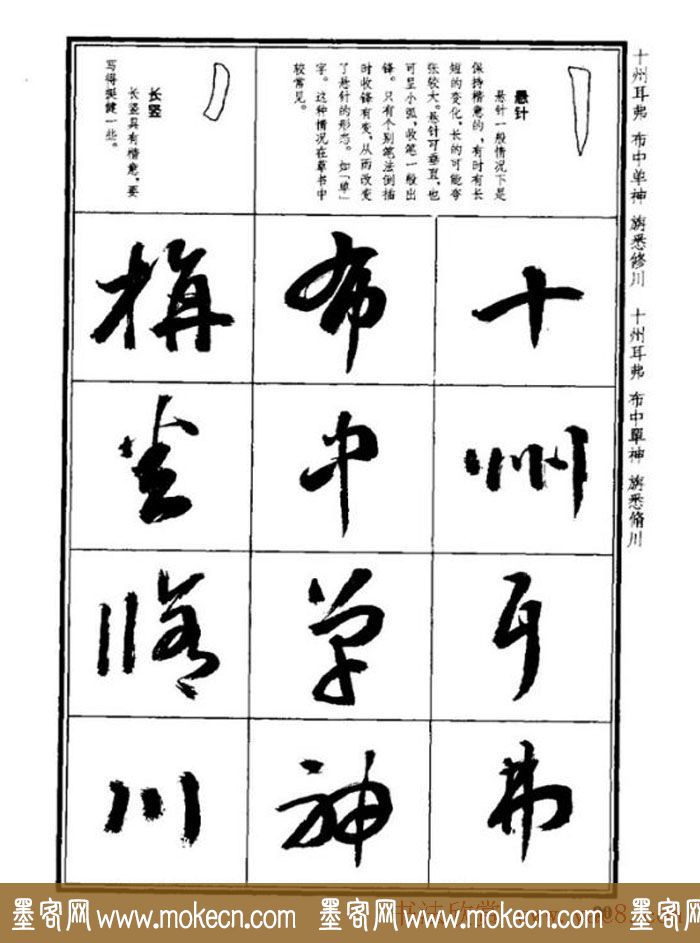 十州耳弗 布中单神 旃悉修川 十州耳弗 布中單神 旃悉脩川
悬针
悬针一般情况下是
保持楷意的,有时有长
短的变化,长的可能夸
张较大。悬针可垂直,也
可呈小弧,收笔一般出
锋。只有个别笔法倒插
时收锋有变,从而改变
了悬针的形态。如「单」
字。这种情况在草书中
较常见。
长竖
长竖具有楷意,要
写得挺健一些。
十
州
耳
弗
布
中
单
神
旃
悉
脩
川
墨客网 www.mokecn.com 墨客网 www.mokecn.com 墨客网 www.mokecn.com